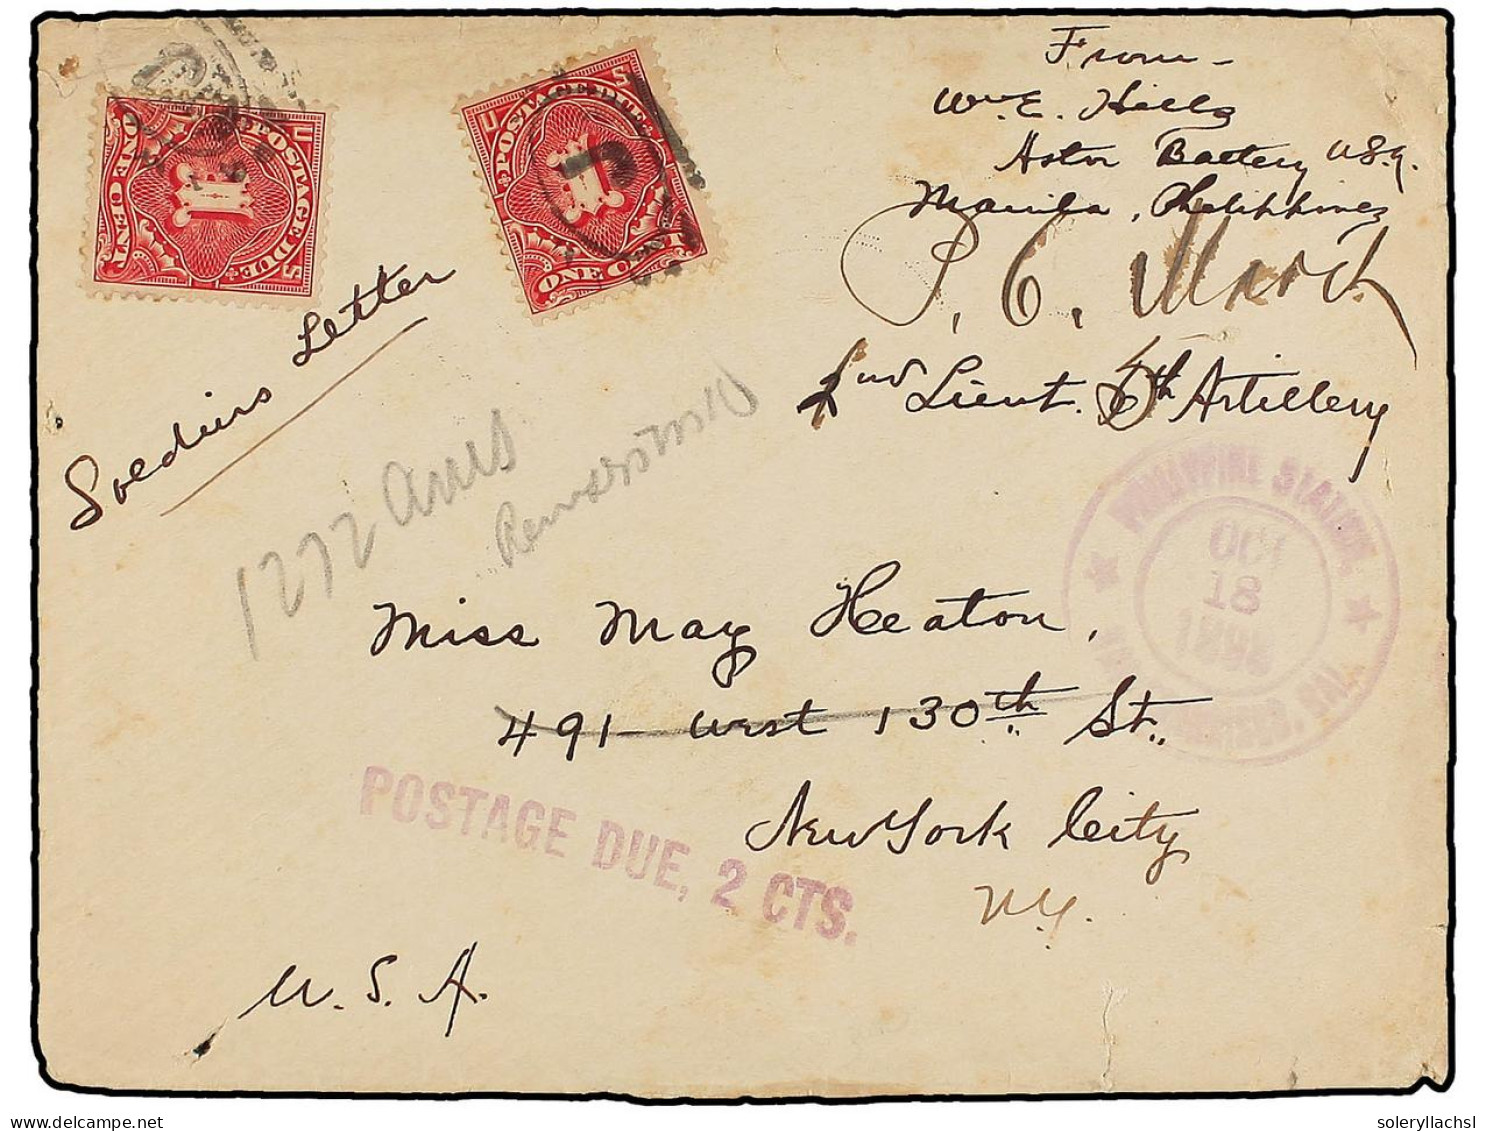 From -
Wm. E. Hills
Astor Battery U.S.A.
Manila, Philippines
P. C. March
2nd Lieut. 5th Artillery
U.S. POSTAGE DUE
1
ONE CENT
U.S. POSTAGE DUE
1
ONE CENT
Soldiers Letter
1272 Ams
PHILIPPINE STATION
OCT
18
1898
SAN FRANCISCO, CAL.
Miss May Heaton,
491 West 130th St.,
New York City
N.Y.
POSTAGE DUE, 2 CTS.
U. S. A.
soleryllachsl